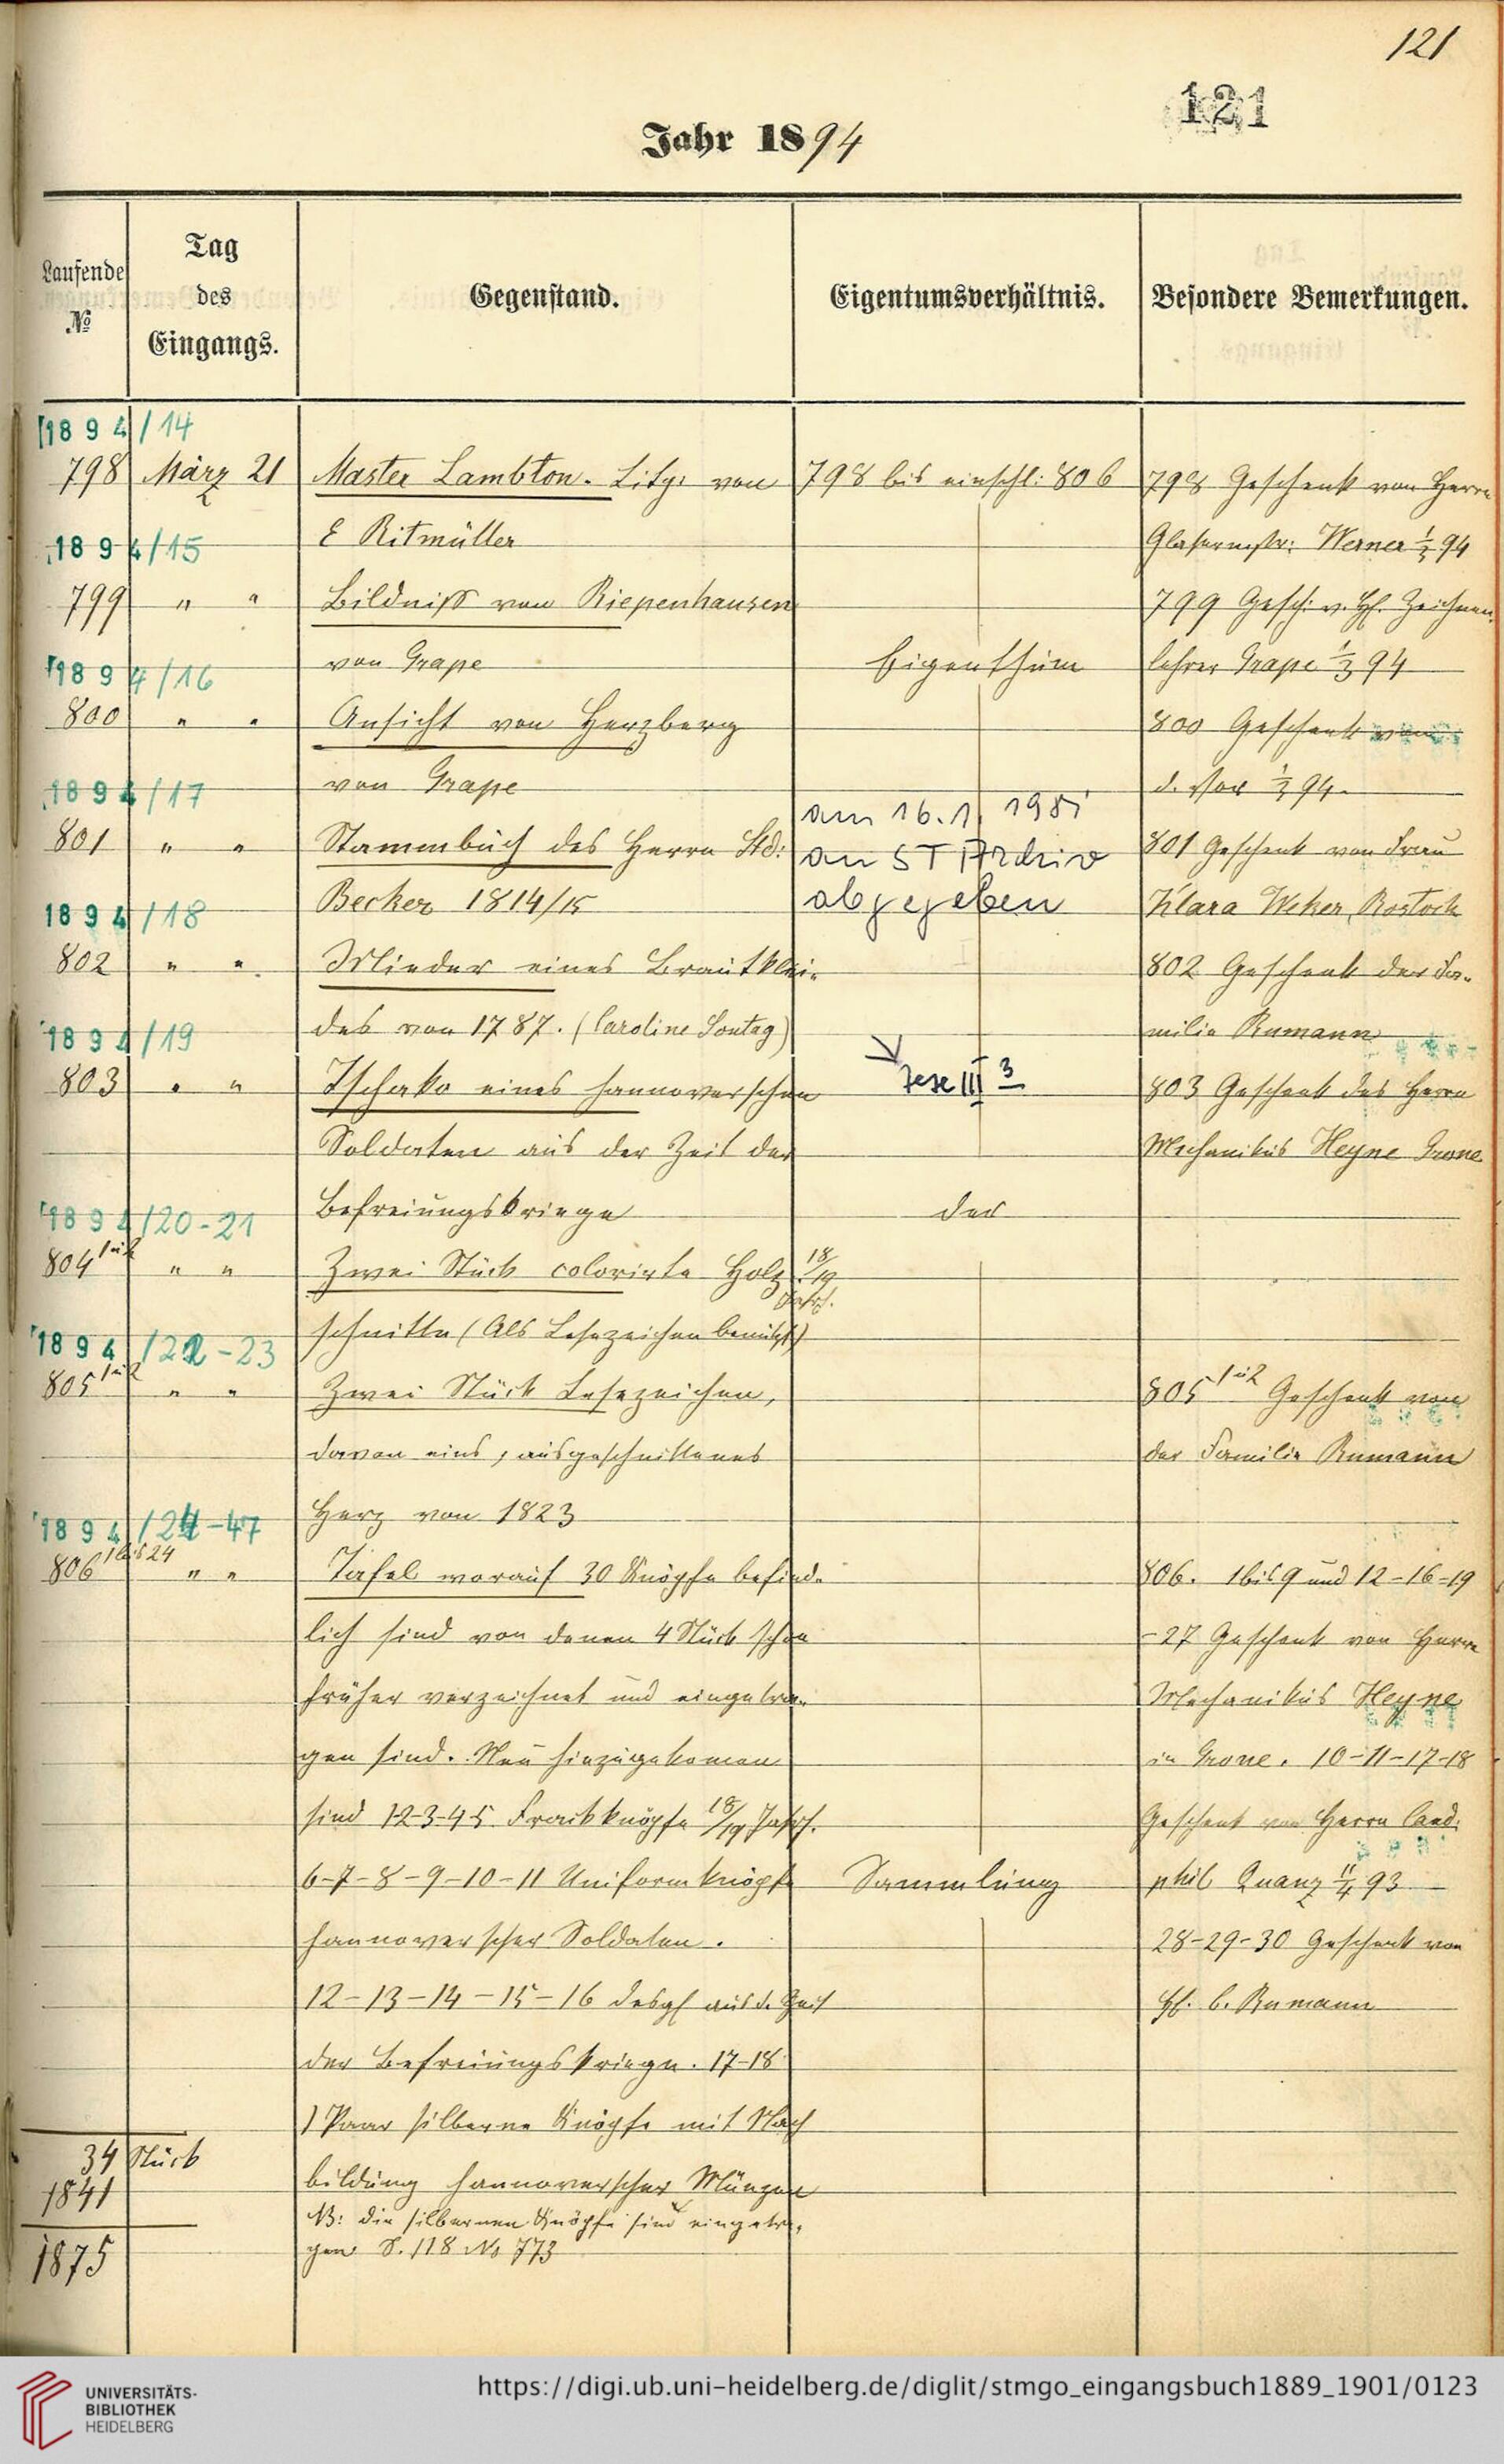 121
121
Jahr 1894
Laufende
№
Tag
des
Eingangs.
Gegenstand.
Eigentumsverhältnis.
Besondere Bemerkungen.
1894/14
798 März 21 Master Lambton. Litgr von 798 bis einschl: 806 798 Geschenk von Herrn
E Ritmüller Glasermstr: Werner 1/3 94
1894/15
799 " " Bildniss von Riepenhausen 799 Gesch: v. H. Zeichnen
von Grape Eigenthum lehrer Grape 1/3 94
1894/16
800 " " Ansicht von Herzberg 800 Geschenk von
von Grape d. Vor 1/3 94.
1894/17
am 16.1. 1981
801 " " Stammbuch des Herrn Std: an ST Archiv 801 Geschenk von Frau
Becker 1814/15 abgegeben Klara Weker, Rostock
1894/18
802 " " Mieder eines Brautklei- 802 Geschenk der Fa-
des von 1787. (Caroline Sontag) milie Rumann
1894/19
803 " " Tschako eines hannoverschen III 3 803 Geschenk des Herrn
Soldaten aus der Zeit der Mechanikus Heyne Grone
Befreiungskriege der
1894/20-21
804 1 u 2 " " Zwei Stück colorirte Holz 18/19 Jahrh.
schnitte (Als Lesezeichen benützt)
1894/22-23
805 1 u 2 " " Zwei Stück Lesezeichen, 805 1 u 2 Geschenk von
davon eins, ausgeschnittenes der Familie Rumann
Herz von 1823
1894/24-47
806 1 bis 24 " " Tafel worauf 30 Knöpfe befind- 806. 1 bis 9 und 12-16-19
lich sind von denen 4 Stück schon -27 Geschenk von Herrn
früher verzeichnet und eingetra- Mechanikus Heyne
gen sind. Neu hinzugekomen in Grone. 10-11-17-18
sind 1-2-3-4-5 Frackknöpfe 18/19 Jahrh. Geschenk von Herrn Cand.
6-7-8-9-10-11 Uniformknöpfe Sammlung phil Quanz 11/4 93
hannoverscher Soldaten. 28-29-30 Geschenk von
12-13-14-15-16 desgl aus d. Zeit H. C. Rumann
der Befreiungskriege. 17-18
1 Paar silberne Knöpfe mit Nach
34 Stück
bildung hannoverscher Münzen
1841
NB: die silbernen Knöpfe sind eingetra-
gen S. 118 No 773
1875
UNIVERSITÄTS-
BIBLIOTHEK
HEIDELBERG
https://digi.ub.uni-heidelberg.de/diglit/stmgo_eingangsbuch1889_1901/0123